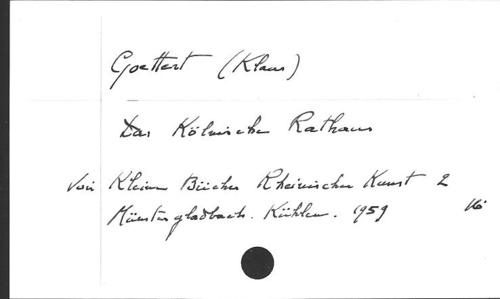 Goettert (Klaus)
Das Kölnische Rathaus
Voir Kleine Bücher Rheinischer Kunst 2
Münstergladbach. Kühlen. 1959 16°